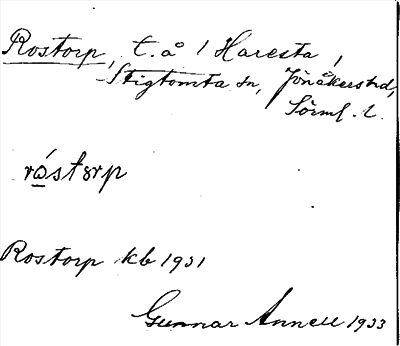 Rostorp, t. å 1 Haresta,
Stigtomta sn, Jönåkers hd,
Sörml. l.
róstorp
Rostorp kb 1931
Gunnar Annell 1933